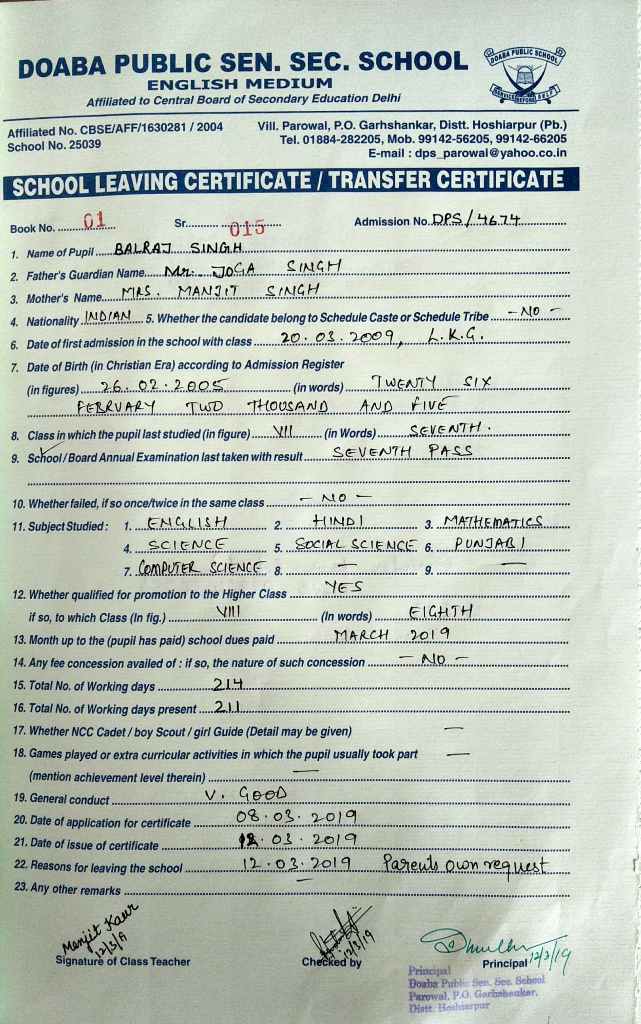 DOABA PUBLIC SEN. SEC. SCHOOL
DOABA PUBLIC SCHOOL
ENGLISH MEDIUM
Affiliated to Central Board of Secondary Education Delhi
Affiliated No. CBSE/AFF/1630281 / 2004
School No. 25039
Vill. Parowal, P.O. Garhshankar, Distt. Hoshiarpur (Pb.)
Tel. 01884-282205, Mob. 99142-56205, 99142-66205
E-mail : dps_parowal@yahoo.co.in
SCHOOL LEAVING CERTIFICATE / TRANSFER CERTIFICATE
Book No. 01 Sr. 015 Admission No. DPS/4674
1. Name of Pupil BALRAJ SINGH
2. Father's Guardian Name Mr. JOGA SINGH
3. Mother's Name MRS. MANJIT SINGH
4. Nationality INDIAN 5. Whether the candidate belong to Schedule Caste or Schedule Tribe - NO -
6. Date of first admission in the school with class 20.03.2009, L.K.G.
7. Date of Birth (in Christian Era) according to Admission Register
(in figures) 26.02.2005 (in words) TWENTY SIX
FEBRVARY TWO THOUSAND AND FIVE
8. Class in which the pupil last studied (in figure) VII (in Words) SEVENTH.
9. School / Board Annual Examination last taken with result SEVENTH PASS
10. Whether failed, if so once/twice in the same class - NO -
11. Subject Studied : 1. ENGLISH 2. HINDI 3. MATHEMATICS
4. SCIENCE 5. SOCIAL SCIENCE 6. PUNJABI
7. COMPUTER SCIENCE 8. — 9. —
12. Whether qualified for promotion to the Higher Class YES
if so, to which Class (In fig.) VIII (In words) EIGHTH
13. Month up to the (pupil has paid) school dues paid MARCH 2019
14. Any fee concession availed of : if so, the nature of such concession - NO -
15. Total No. of Working days 214
16. Total No. of Working days present 211
17. Whether NCC Cadet / boy Scout / girl Guide (Detail may be given) —
18. Games played or extra curricular activities in which the pupil usually took part —
(mention achievement level therein) —
19. General conduct V. GOOD
20. Date of application for certificate 08.03.2019
21. Date of issue of certificate 12.03.2019
22. Reasons for leaving the school 12.03.2019 Parents own request
23. Any other remarks —
Manjit Kaur
12/3/19
12/3/19
12/3/19
Signature of Class Teacher Checked by Principal
Principal
Doaba Public Sen. Sec. School
Parowal, P.O. Garhshankar,
Distt. Hoshiarpur